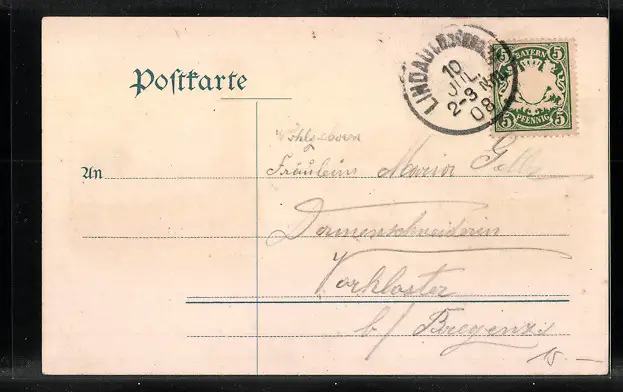 Postkarte
LINDAU
10 JUL.
2-3 Nm.
08
5 BAYERN 5
5 PFENNIG 5
Wohlgeboren
An Fräulein Maria
Damenschneiderin
Vorkloster
b/ Bregenz
15 —